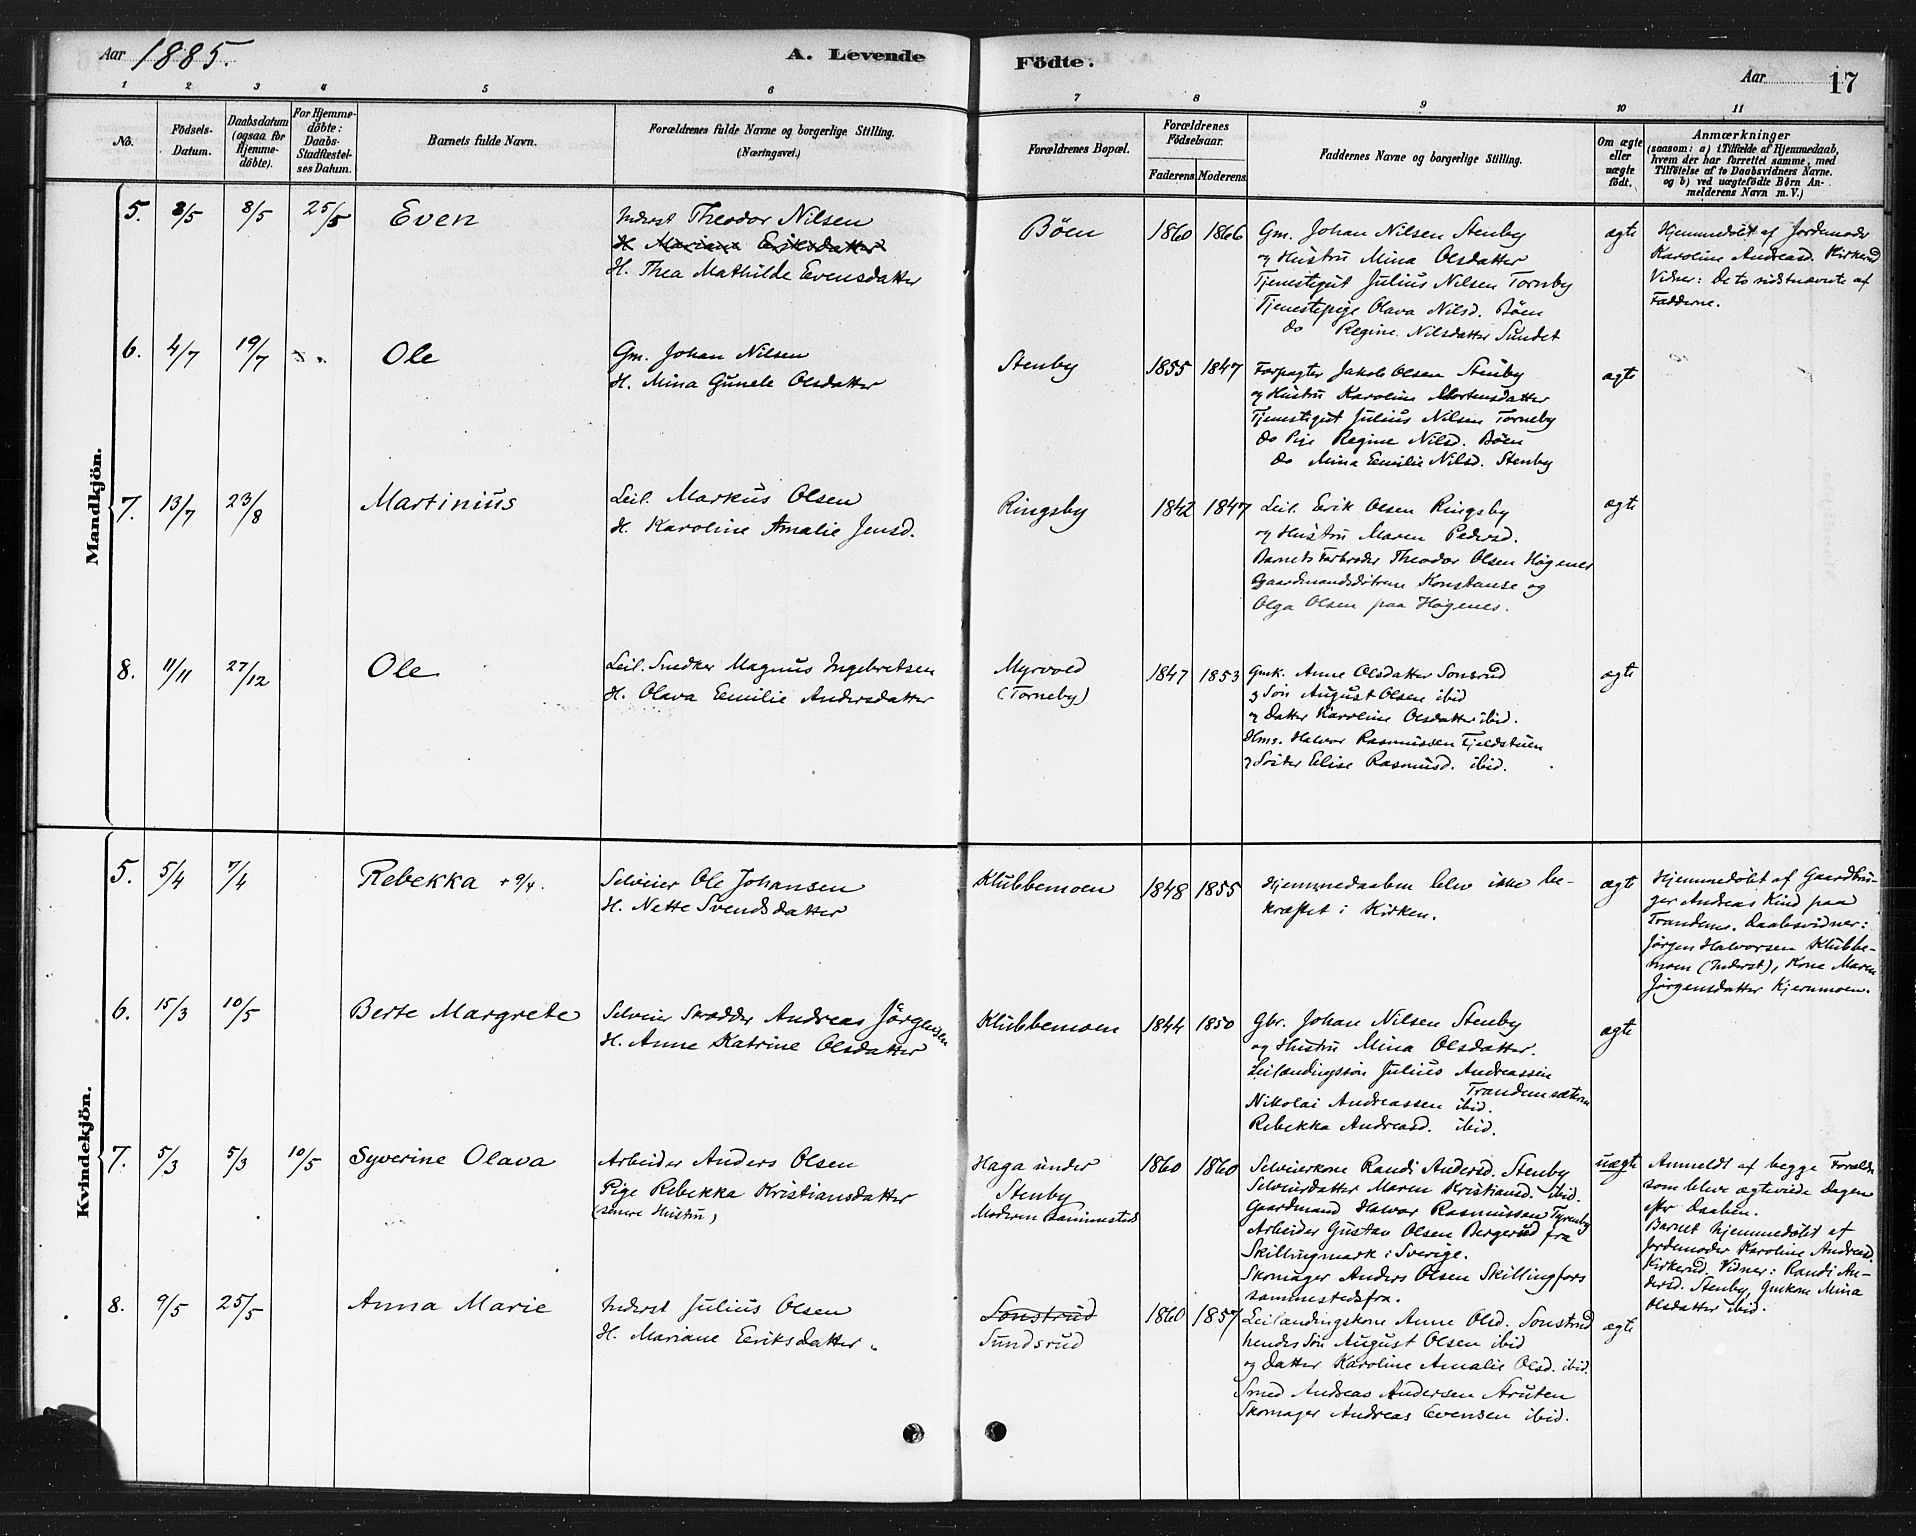 Aar 1885.
A. Levende Födte.
Aar 17
1 2 3 4 5 6 7 8 9 10 11
No.
Födsels-Datum.
Daabsdatum (ogsaa for Hjemme-döbte).
For Hjemme-döbte: Daabs-Stadfæstel-ses Datum.
Barnets fulde Navn.
Forældrenes fulde Navne og borgerlige Stilling.
(Næringsvei.)
Forældrenes Bopæl.
Forældrenes Födselsaar.
Faderens. Moderens.
Faddernes Navne og borgerlige Stilling.
Om ægte eller uægte födt.
Anmærkninger
(saasom: a) i Tilfælde af Hjemmedaab,
hvem der har forrettet samme, med
Tilföielse af to Daabsvidners Navne.
og b) ved uægtefödte Børn An-
melderens Navn m. V.)
Mandkjön.
5. 8/5 8/5 25/5 Even
Inderst Theodor Nilsen
H. Mariane Eriksdatter
H. Thea Mathilde Evensdatter
Böen 1860 1866
Gm. Johan Nilsen Stenby
og Hustru Mina Olsdatter
Tjenestegut Julius Nilsen Tornby
Tjenestepige Olava Nilsd. Böen
do Regine Nilsdatter Sundet
ægte
Hjemmedöbt af Jordemoder
Karoline Andreasd. Kirkerud
Vidner: De to sidstnævnte af
Fadderne.
6. 4/7 19/7 Ole
Gm. Johan Nilsen
H. Mina Gunele Olsdatter
Stenby 1855 1847
Forpagter Jakob Olsen Stenby
og Hustru Karoline Mortensdatter
Tjenestegut Julius Nilsen Torneby
do Pige Regine Nilsd. Böen
do Mina Emilie Nilsd. Stenby
ægte
7. 13/7 23/8 Martinius
Leil. Markus Olsen
H. Karoline Amalie Jensd.
Ringsby 1842 1847
Leil. Erik Olsen Ringsby
og Hustru Maren Pedersd.
Barnets Farbroder Theodor Olsen Högenes
Gaardmandsdötrene Konstanse og
Olga Olsen paa Högenes.
ægte
8. 11/11 27/12 Ole
Leil. Snedker Magnus Ingebretsen
H. Olava Emilie Andersdatter
Myrvold
(Torneby)
1847 1853
Gmk. Anne Olsdatter Sonsrud
og Sön August Olsen ibid
og Datter Karoline Olsdatter ibid.
Hms. Halvor Rasmussen Fjeldstuen
og Söster Elise Rasmusd. ibid.
ægte
Kvindekjön.
5. 5/4 7/4 Rebekka + 9/4.
Selveier Ole Johansen
H. Nette Svendsdatter
Klubbemoen 1848 1855
Hjemmedaaben blev ikke be-
kræftet i Kirken.
ægte
Hjemmedöbt af Gaardbru-
ger Andreas Kind paa
Trandem. Daabsvidner:
Jörgen Halvorsen Klubbe-
moen (Inderst), Kone Maren
Jörgensdatter Kjernmoen.
6. 15/3 10/5 Berte Margrete
Selveier Skrædder Andreas Jörgensen
H. Anne Katrine Olsdatter
Klubbemoen 1844 1850
Gbr. Johan Nilsen Stenby
og Hustru Mina Olsdatter.
Leilændingssön Julius Andreassen
Trandemsæteren
Nikolai Andreassen ibid.
Rebekka Andreasd. ibid.
ægte
7. 5/3 5/3 10/5 Syverine Olava
Arbeider Anders Olsen
Pige Rebekka Kristiansdatter
(senere Hustru)
Haga under
Stenby
Moderen sammesteds
1860 1860
Selveierkone Randi Andersd. Stenby
Selveierdatter Maren Kristiansd. ibid.
Gaardmand Halvor Rasmussen Tyrenby
Arbeider Gustav Olsen Bergerud fra
Skillingmark i Sverige.
Skomager Anders Olsen Skillingfors
sammestedsfra.
uægte
Anmeldt af begge Forældre
som bleve ægteviede Dagen
efter Daaben.
Barnet hjemmedöbt af
Jordemoder Karoline Andreasd.
Kirkerud. Vidner: Randi An-
dersd. Stenby, Gmkone Mina
Olsdatter ibid.
8. 9/5 25/5 Anna Marie
Inderst Julius Olsen
H. Mariane Eeriksdatter.
Sonstrud
Sundsrud
1860 1857
Leilændingskone Anne Olsd. Sonstrud
hendes Sön August Olsen ibid
og Datter Karoline Amalie Olsd. ibid.
Smed Andreas Andersen Struten
Skomager Andreas Evensen ibid.
ægte